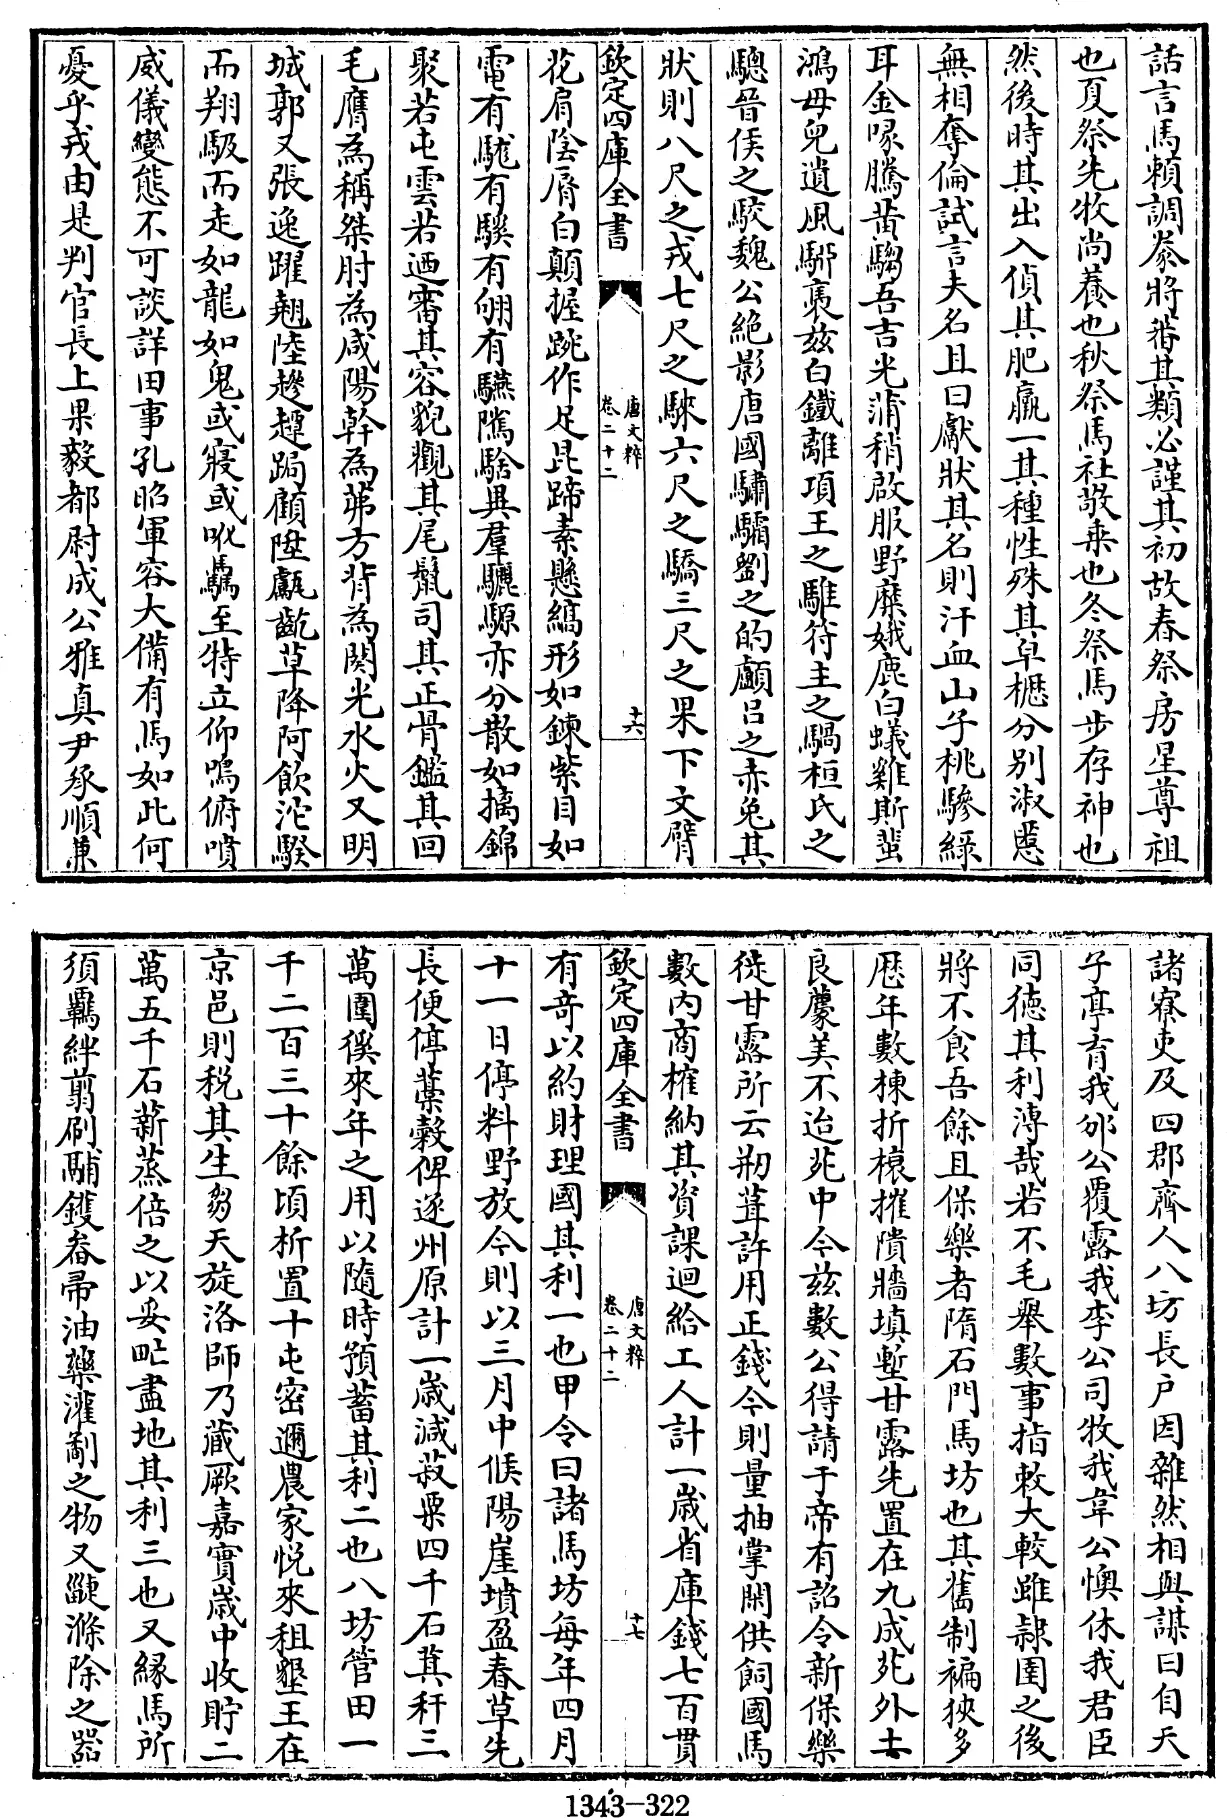 話言馬賴調豢將蕃其類必謹其初故春祭房星尊祖
也夏祭先牧尚養也秋祭馬社敬乗也冬祭馬步存神也
然後時其出入偵其肥羸一其種性殊其皁櫪分別淑慝
無相奪倫試言夫名且曰獻狀其名則汗血山子桃驂緑
耳金喙騰黄騶吾吉光蒲稍啟服野麋娥鹿白蟻雞斯蜚
鴻母兒遺風騕褭兹白鐵離項王之騅符主之騧桓氏之
驄晉侯之駮魏公絶影唐國驌驦劉之的顱吕之赤兔其
狀則八尺之戎七尺之騋六尺之驕三尺之果下文臂
欽定四庫全書
唐文粹
卷二十二
十六
花肩陰脣白顛握踠作足昆蹄素懸縞形如鍊紫目如
電有駹有騏有翎有驠騰騇異羣驪騵亦分散如摛錦
聚若屯雲若迺審其容貌觀其尾鬣司其正骨鑑其回
毛膺為稱桀肘為咸陽幹為茀方背為闋光水火又明
城郭又張逸躍翹陸趁趠跼顧陞甗齕草降阿飲沱騤
而翔駊而走如龍如鬼或寢或吪驫至特立仰鳴俯噴
威儀變態不可談詳田事孔昭軍容大備有馬如此何
憂乎戎由是判官長上果毅都尉成公雅真尹承順兼
諸寮吏及四郡齊人八坊長户因雜然相與謀曰自天
子亭育我邠公覆露我李公司牧我韋公懊休我君臣
同徳其利溥哉若不毛舉數事指敕大較雖隷圉之後
將不食吾餘且保樂者隋石門馬坊也其舊制褊狹多
歴年數棟折榱摧隤牆填塹甘露先置在九成苑外士
良麌美不迨苑中今兹數公得請于帝有詔令新保樂
徙甘露所云刱葺許用正錢今則量抽掌閑供飼國馬
數内商榷納其資課迴給工人計一歲省庫錢七百貫
欽定四庫全書
唐文粹
卷二十二
十七
有竒以約財理國其利一也甲令曰諸馬坊每年四月
十一日停料野放今則以三月中候陽崖墳盈春草先
長便停藁穀俾遂州原計一歲減菽粟四千石萁秆三
萬圍徯來年之用以隨時預蓄其利二也八坊管田一
千二百三十餘頃析置十屯密邇農家悦來租墾王在
京邑則税其生芻天旋洛師乃藏厥嘉實歲中收貯二
萬五千石薪蒸倍之以妥甿盡地其利三也又縁馬所
須覊絆剪刷鬴鑊畚帚油藥灌劀之物又鼶滌除之器
1343-322